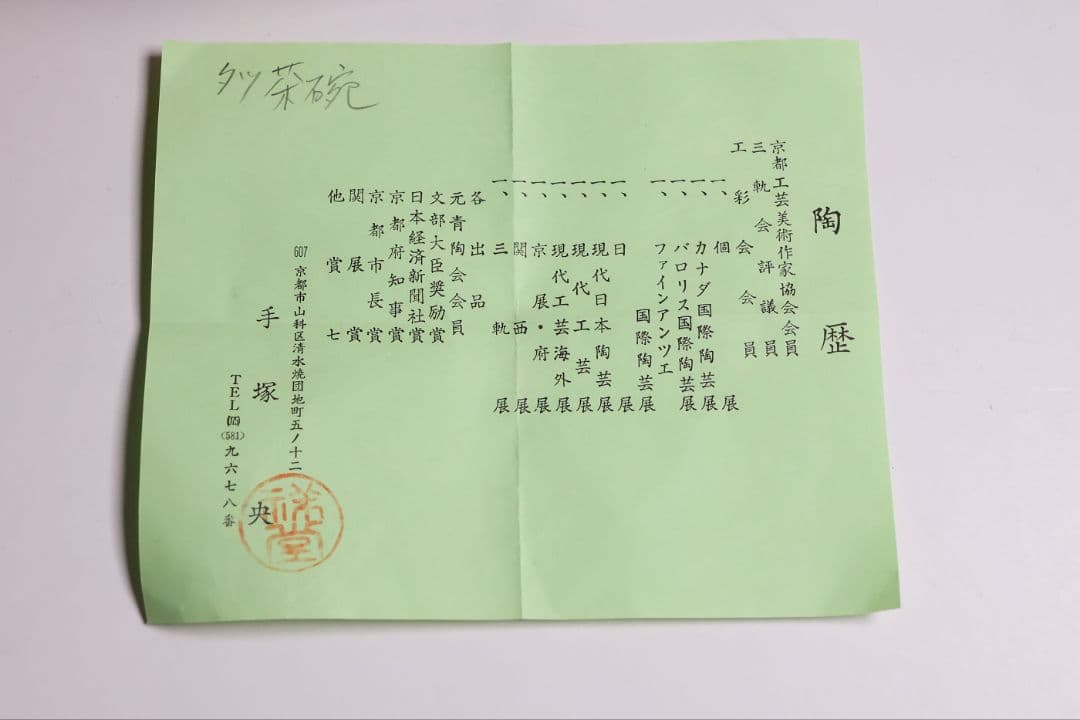 タツ茶碗
陶歴
京都工芸美術作家協会会員
三軌会評議員
工彩会会員
一、個展
一、カナダ国際陶芸展
一、バロリス国際陶芸展
一、ファインアンツエ
国際陶芸展
一、日展
一、現代日本陶芸展
一、現代工芸展
一、現代工芸海外展
一、京展・府展
一、関西展
一、三軌展
各出品
元青陶会会員
文部大臣奨励賞
日本経済新聞社賞
京都府知事賞
京都市長賞
関展賞
他賞七
607 京都市山科区清水焼団地町五ノ十二
手塚央
TEL(075)(581)九六七八番